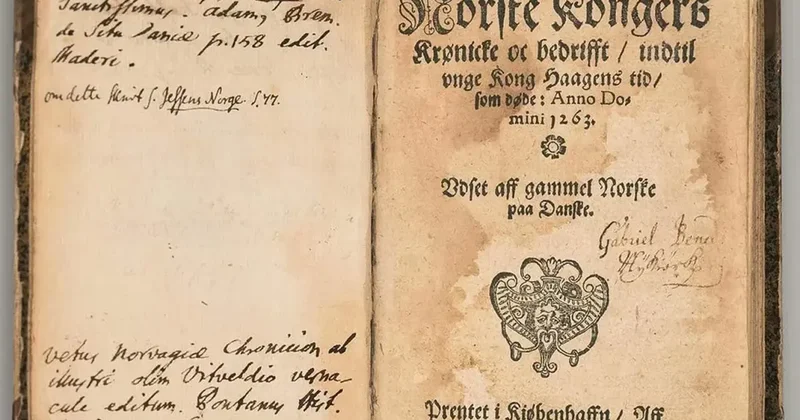 Sanctissimus. Adam, Brem.
de Situ Daniæ p. 158 edit.
Maderi.
om dette Skrift s. Jessens Norge. S. 77.
vetus Norvagiæ Chronicion ab
illustri olim Vitveldio verna-
cule editum. Pontanus Hist.
Norske Kongers
Krønicke oc bedrifft / indtil
vnge Kong Haagens tid /
som døde: Anno Do-
mini 1263.
Vdset aff gammel Norske
paa Danske.
Gabriel
Prentet i Kiøbenhaffn / Aff